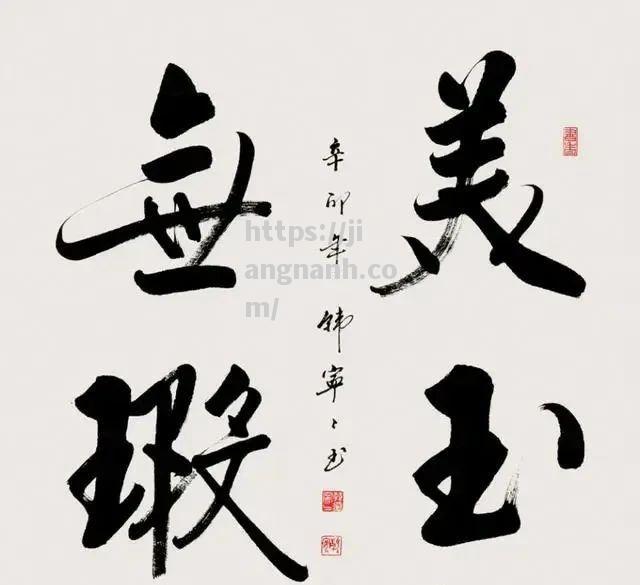 美玉
無瑕
辛卯年 韓寧寧书
https://ji
angnanh.co
m/